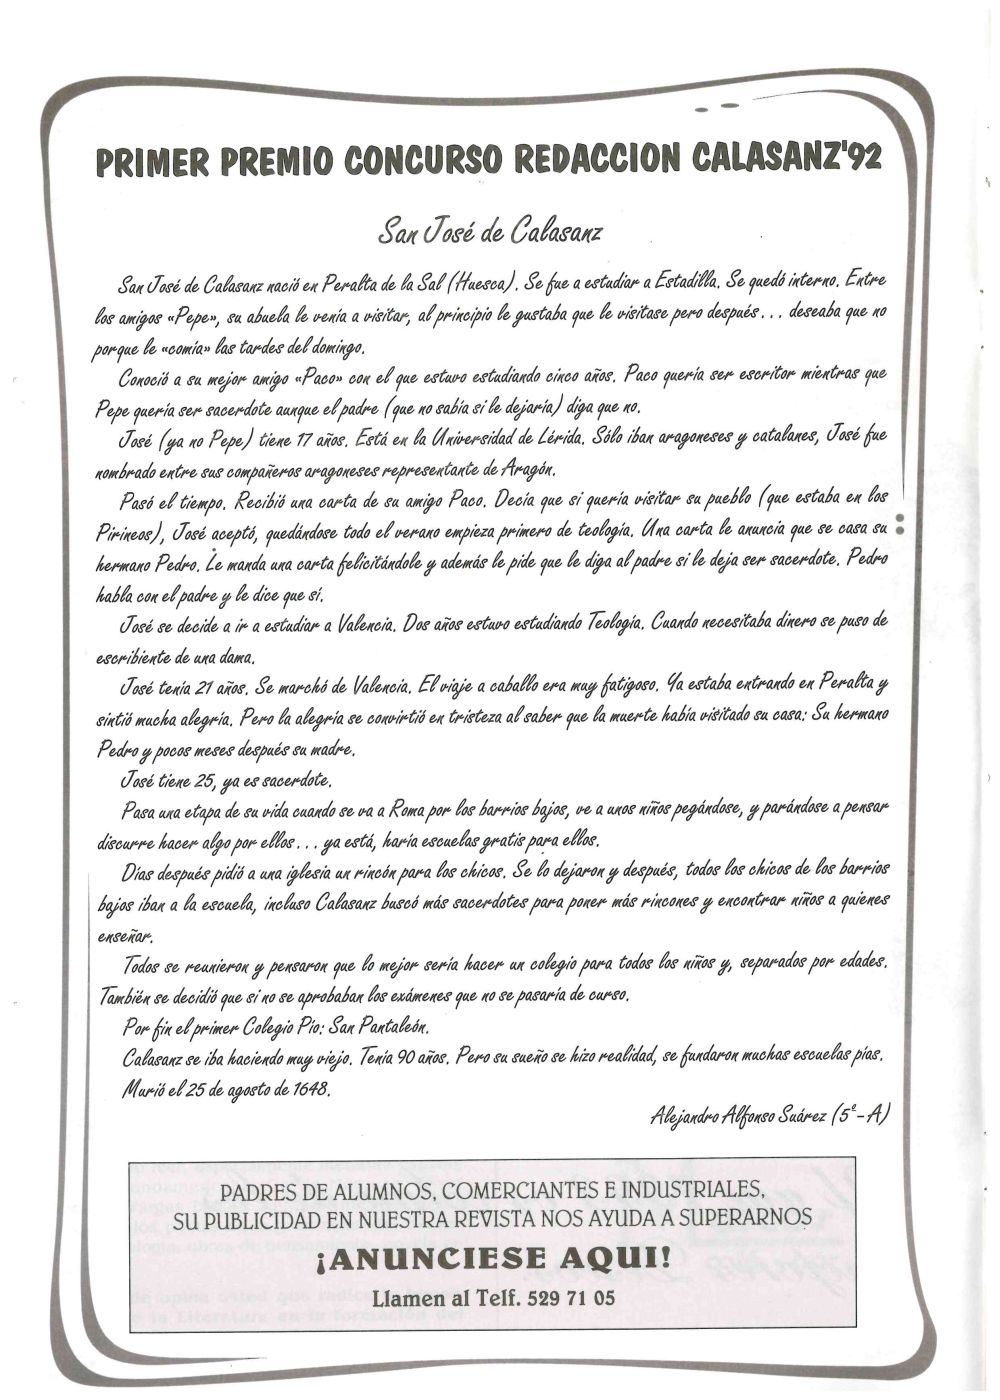 PRIMER PREMIO CONCURSO REDACCION CALASANZ'92
San José de Calasanz
San José de Calasanz nació en Peralta de la Sal (Huesca). Se fue a estudiar a Estadilla. Se quedó interno. Entre
los amigos «Pepe», su abuela le venía a visitar, al principio le gustaba que le visitase pero después... deseaba que no
porque le «comía» las tardes del domingo.
Conoció a su mejor amigo «Paco» con el que estuvo estudiando cinco años. Paco quería ser escritor mientras que
Pepe quería ser sacerdote aunque el padre (que no sabía si le dejaría) diga que no.
José (ya no Pepe) tiene 17 años. Está en la Universidad de Lérida. Sólo iban aragoneses y catalanes, José fue
nombrado entre sus compañeros aragoneses representante de Aragón.
Pasó el tiempo. Recibió una carta de su amigo Paco. Decía que si quería visitar su pueblo (que estaba en los
Pirineos), José aceptó, quedándose todo el verano empieza primero de teología. Una carta le anuncia que se casa su
hermano Pedro. Le manda una carta felicitándole y además le pide que le diga al padre si le deja ser sacerdote. Pedro
habla con el padre y le dice que sí.
José se decide a ir a estudiar a Valencia. Dos años estuvo estudiando Teología. Cuando necesitaba dinero se puso de
escribiente de una dama.
José tenía 21 años. Se marchó de Valencia. El viaje a caballo era muy fatigoso. Ya estaba entrando en Peralta y
sintió mucha alegría. Pero la alegría se convirtió en tristeza al saber que la muerte había visitado su casa: Su hermano
Pedro y pocos meses después su madre.
José tiene 25, ya es sacerdote.
Pasa una etapa de su vida cuando se va a Roma por los barrios bajos, ve a unos niños pegándose, y parándose a pensar
discurre hacer algo por ellos... ya está, haría escuelas gratis para ellos.
Días después pidió a una iglesia un rincón para los chicos. Se lo dejaron y después, todos los chicos de los barrios
bajos iban a la escuela, incluso Calasanz buscó más sacerdotes para poner más rincones y encontrar niños a quienes
enseñar.
Todos se reunieron y pensaron que lo mejor sería hacer un colegio para todos los niños y, separados por edades.
También se decidió que si no se aprobaban los exámenes que no se pasaría de curso.
Por fin el primer Colegio Pío: San Pantaleón.
Calasanz se iba haciendo muy viejo. Tenía 90 años. Pero su sueño se hizo realidad, se fundaron muchas escuelas pías.
Murió el 25 de agosto de 1648.
Alejandro Alfonso Suárez (5º-A)
PADRES DE ALUMNOS, COMERCIANTES E INDUSTRIALES,
SU PUBLICIDAD EN NUESTRA REVISTA NOS AYUDA A SUPERARNOS
¡ANUNCIESE AQUI!
Llamen al Telf. 529 71 05